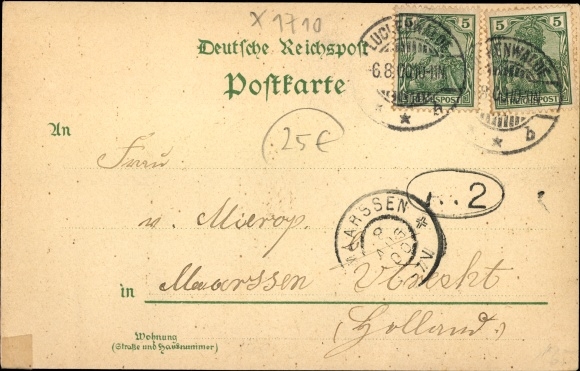 X 1710
5 5
Deutsche Reichspost
Postkarte
LUCKENWALDE
6.8.00 10-11N
* * b
* b
REICHSPOST
An
25€
Frau
v. Mierop.
MAARSSEN
2
in Maarssen Utrecht
(Holland.)
Wohnung
(Straße und Hausnummer)